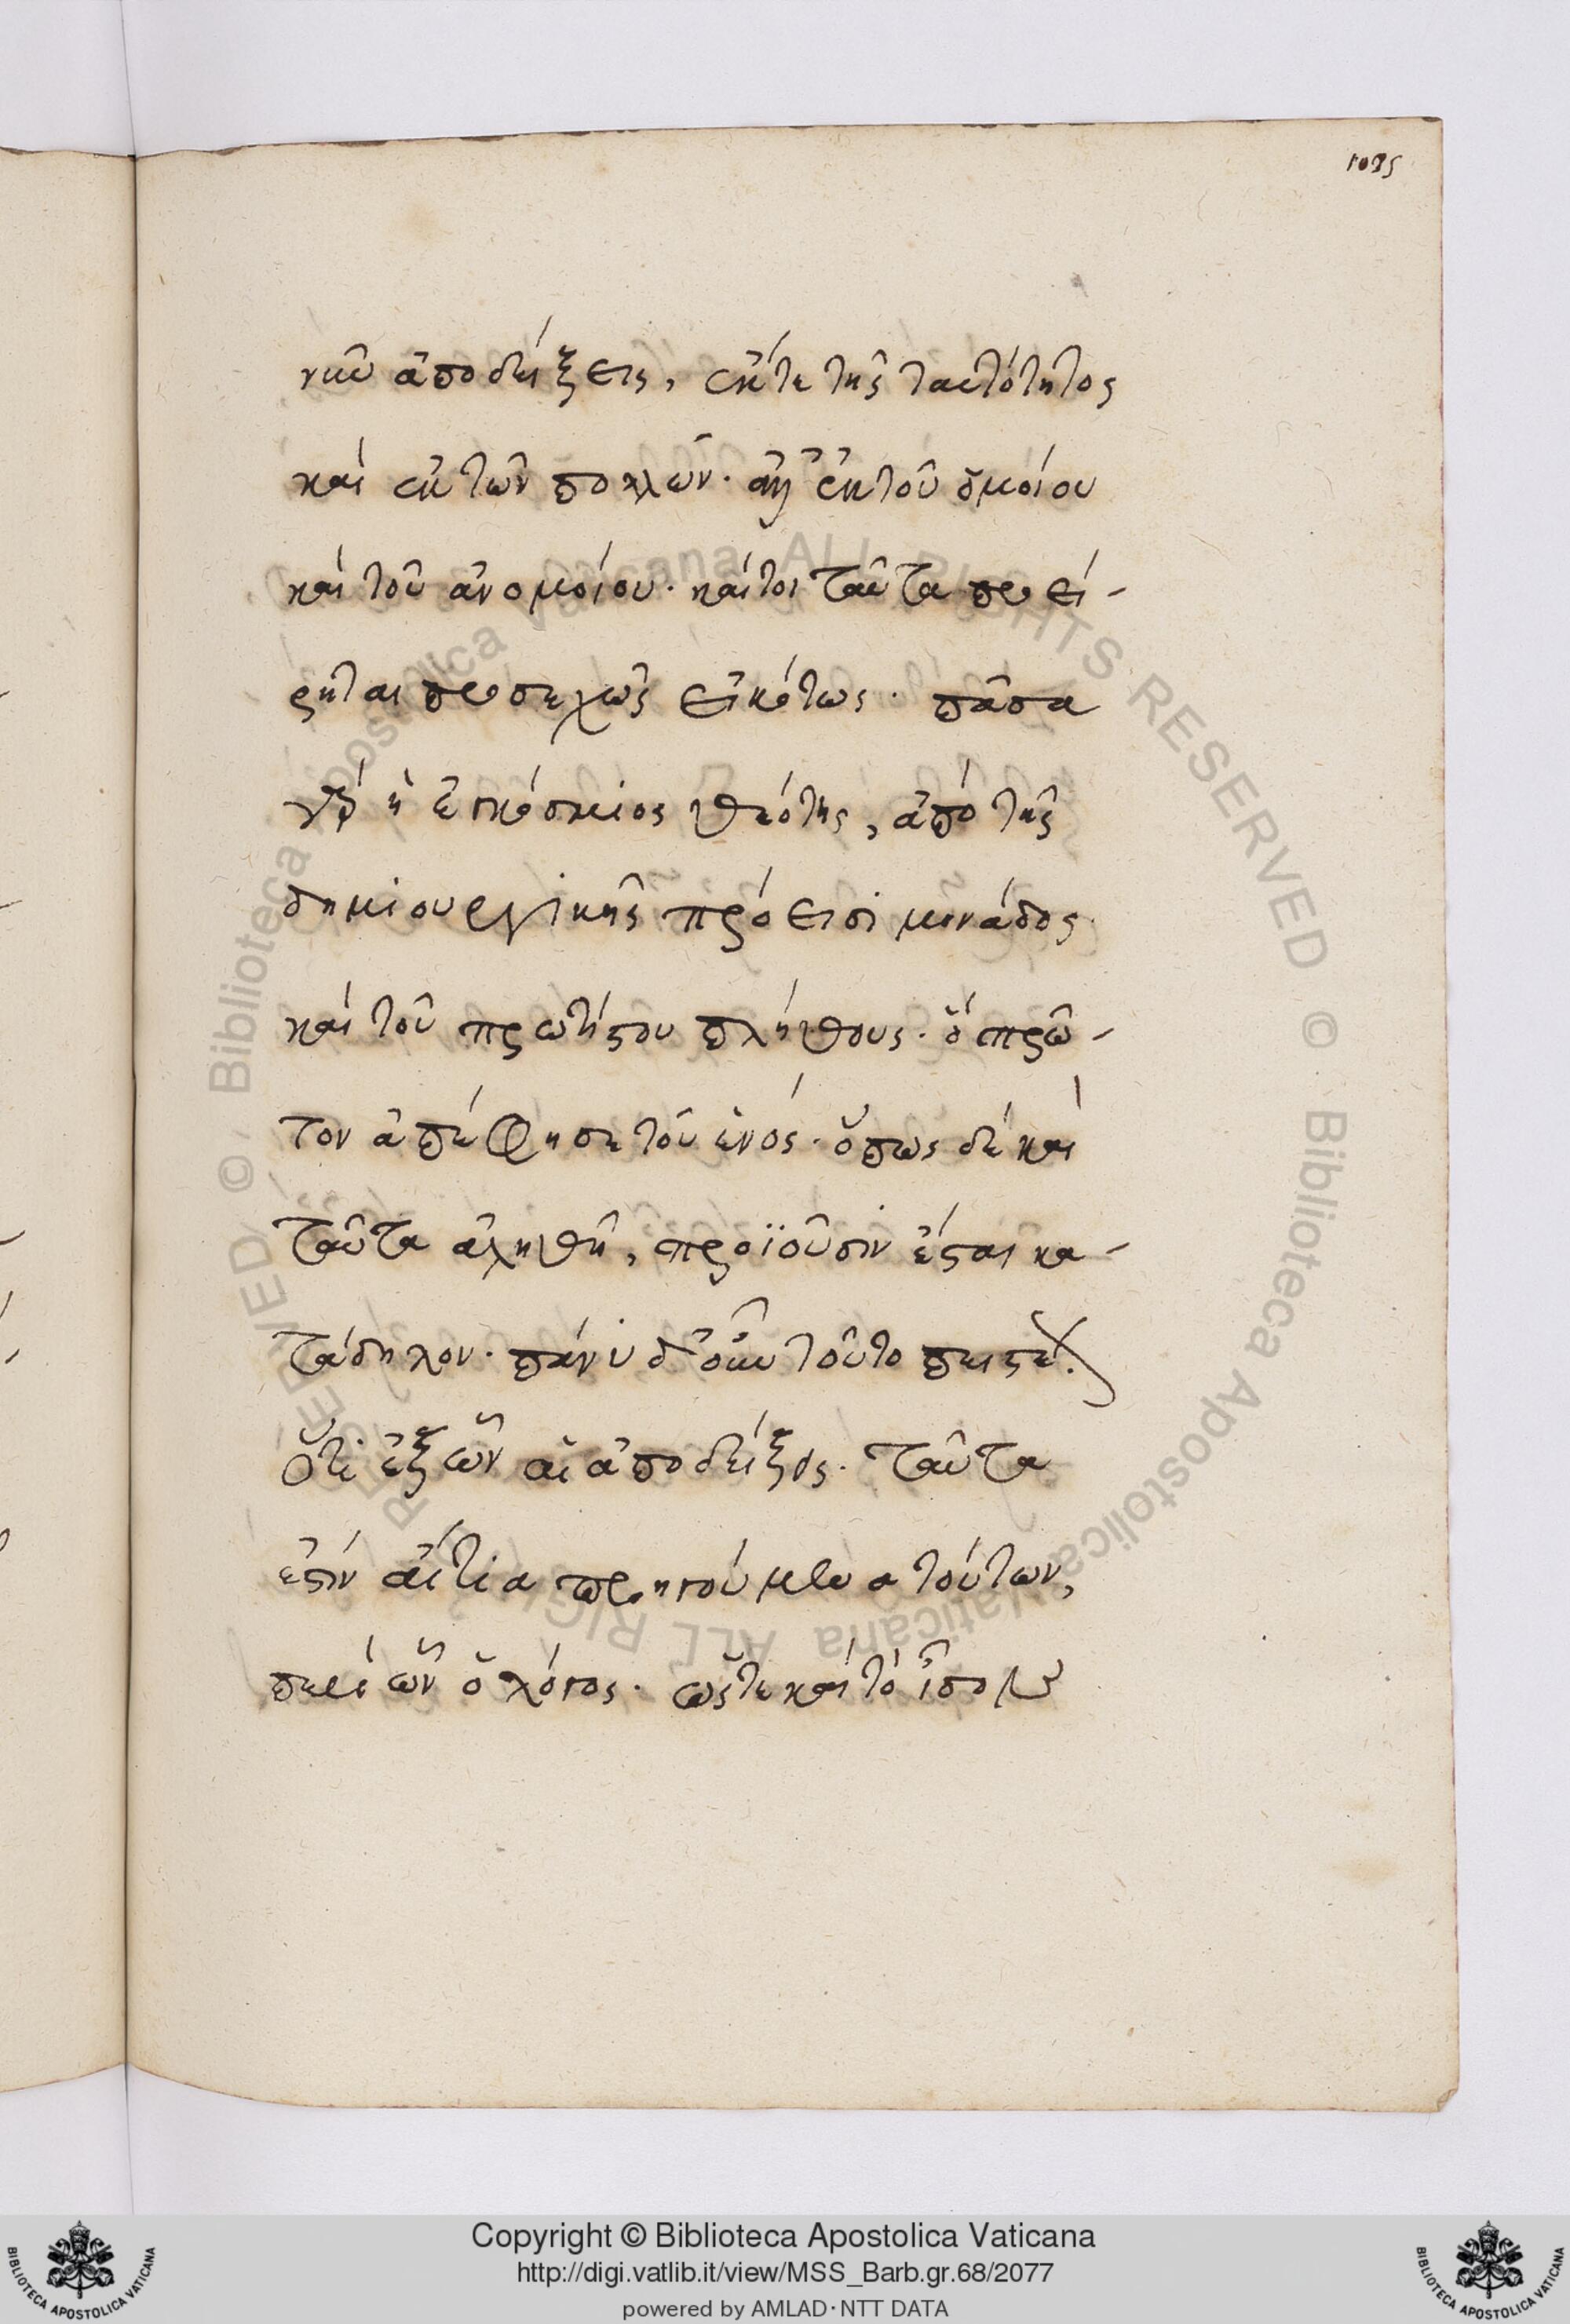 1085
νῦν ἀποδείξεις, ἔκτε τῆς ταυτότητος
καὶ ἐκ τῶν πολλῶν· ἀλλ' ἐκ τοῦ ὁμοίου
καὶ τοῦ ἀνομοίου· καίτοι ταῦτα προεί-
ρηται προσεχῶς εἰκότως· πᾶσα
γὰρ ἡ ἐγκόσμιος θεότης, ἀπὸ τῆς
δημιουργικῆς πρόεισι μονάδος
καὶ τοῦ πρωτίστου πλήθους· ὃ πρῶ-
τον ἀπέφησε τοῦ ἑνός· ὅπως δὲ καὶ
ταῦτα ἀληθῆ, προϊοῦσιν ἔσται κα-
τάδηλον· πάνυ δ' οὖν τοῦτο πιστέον
ὅτι ἐξ ὧν αἱ ἀποδείξεις· ταῦτα
ἐστὶν αἴτια προηγούμενα τούτων,
περὶ ὧν ὁ λόγος· ὥστε καὶ τὸ ἴσον
© Biblioteca Apostolica Vaticana ALL RIGHTS RESERVED © Biblioteca Apostolica Vaticana ALL RIGHTS RESERVED
BIBLIOTECA APOSTOLICA VATICANA
Copyright © Biblioteca Apostolica Vaticana
http://digi.vatlib.it/view/MSS_Barb.gr.68/2077
powered by AMLAD·NTT DATA
BIBLIOTECA APOSTOLICA VATICANA